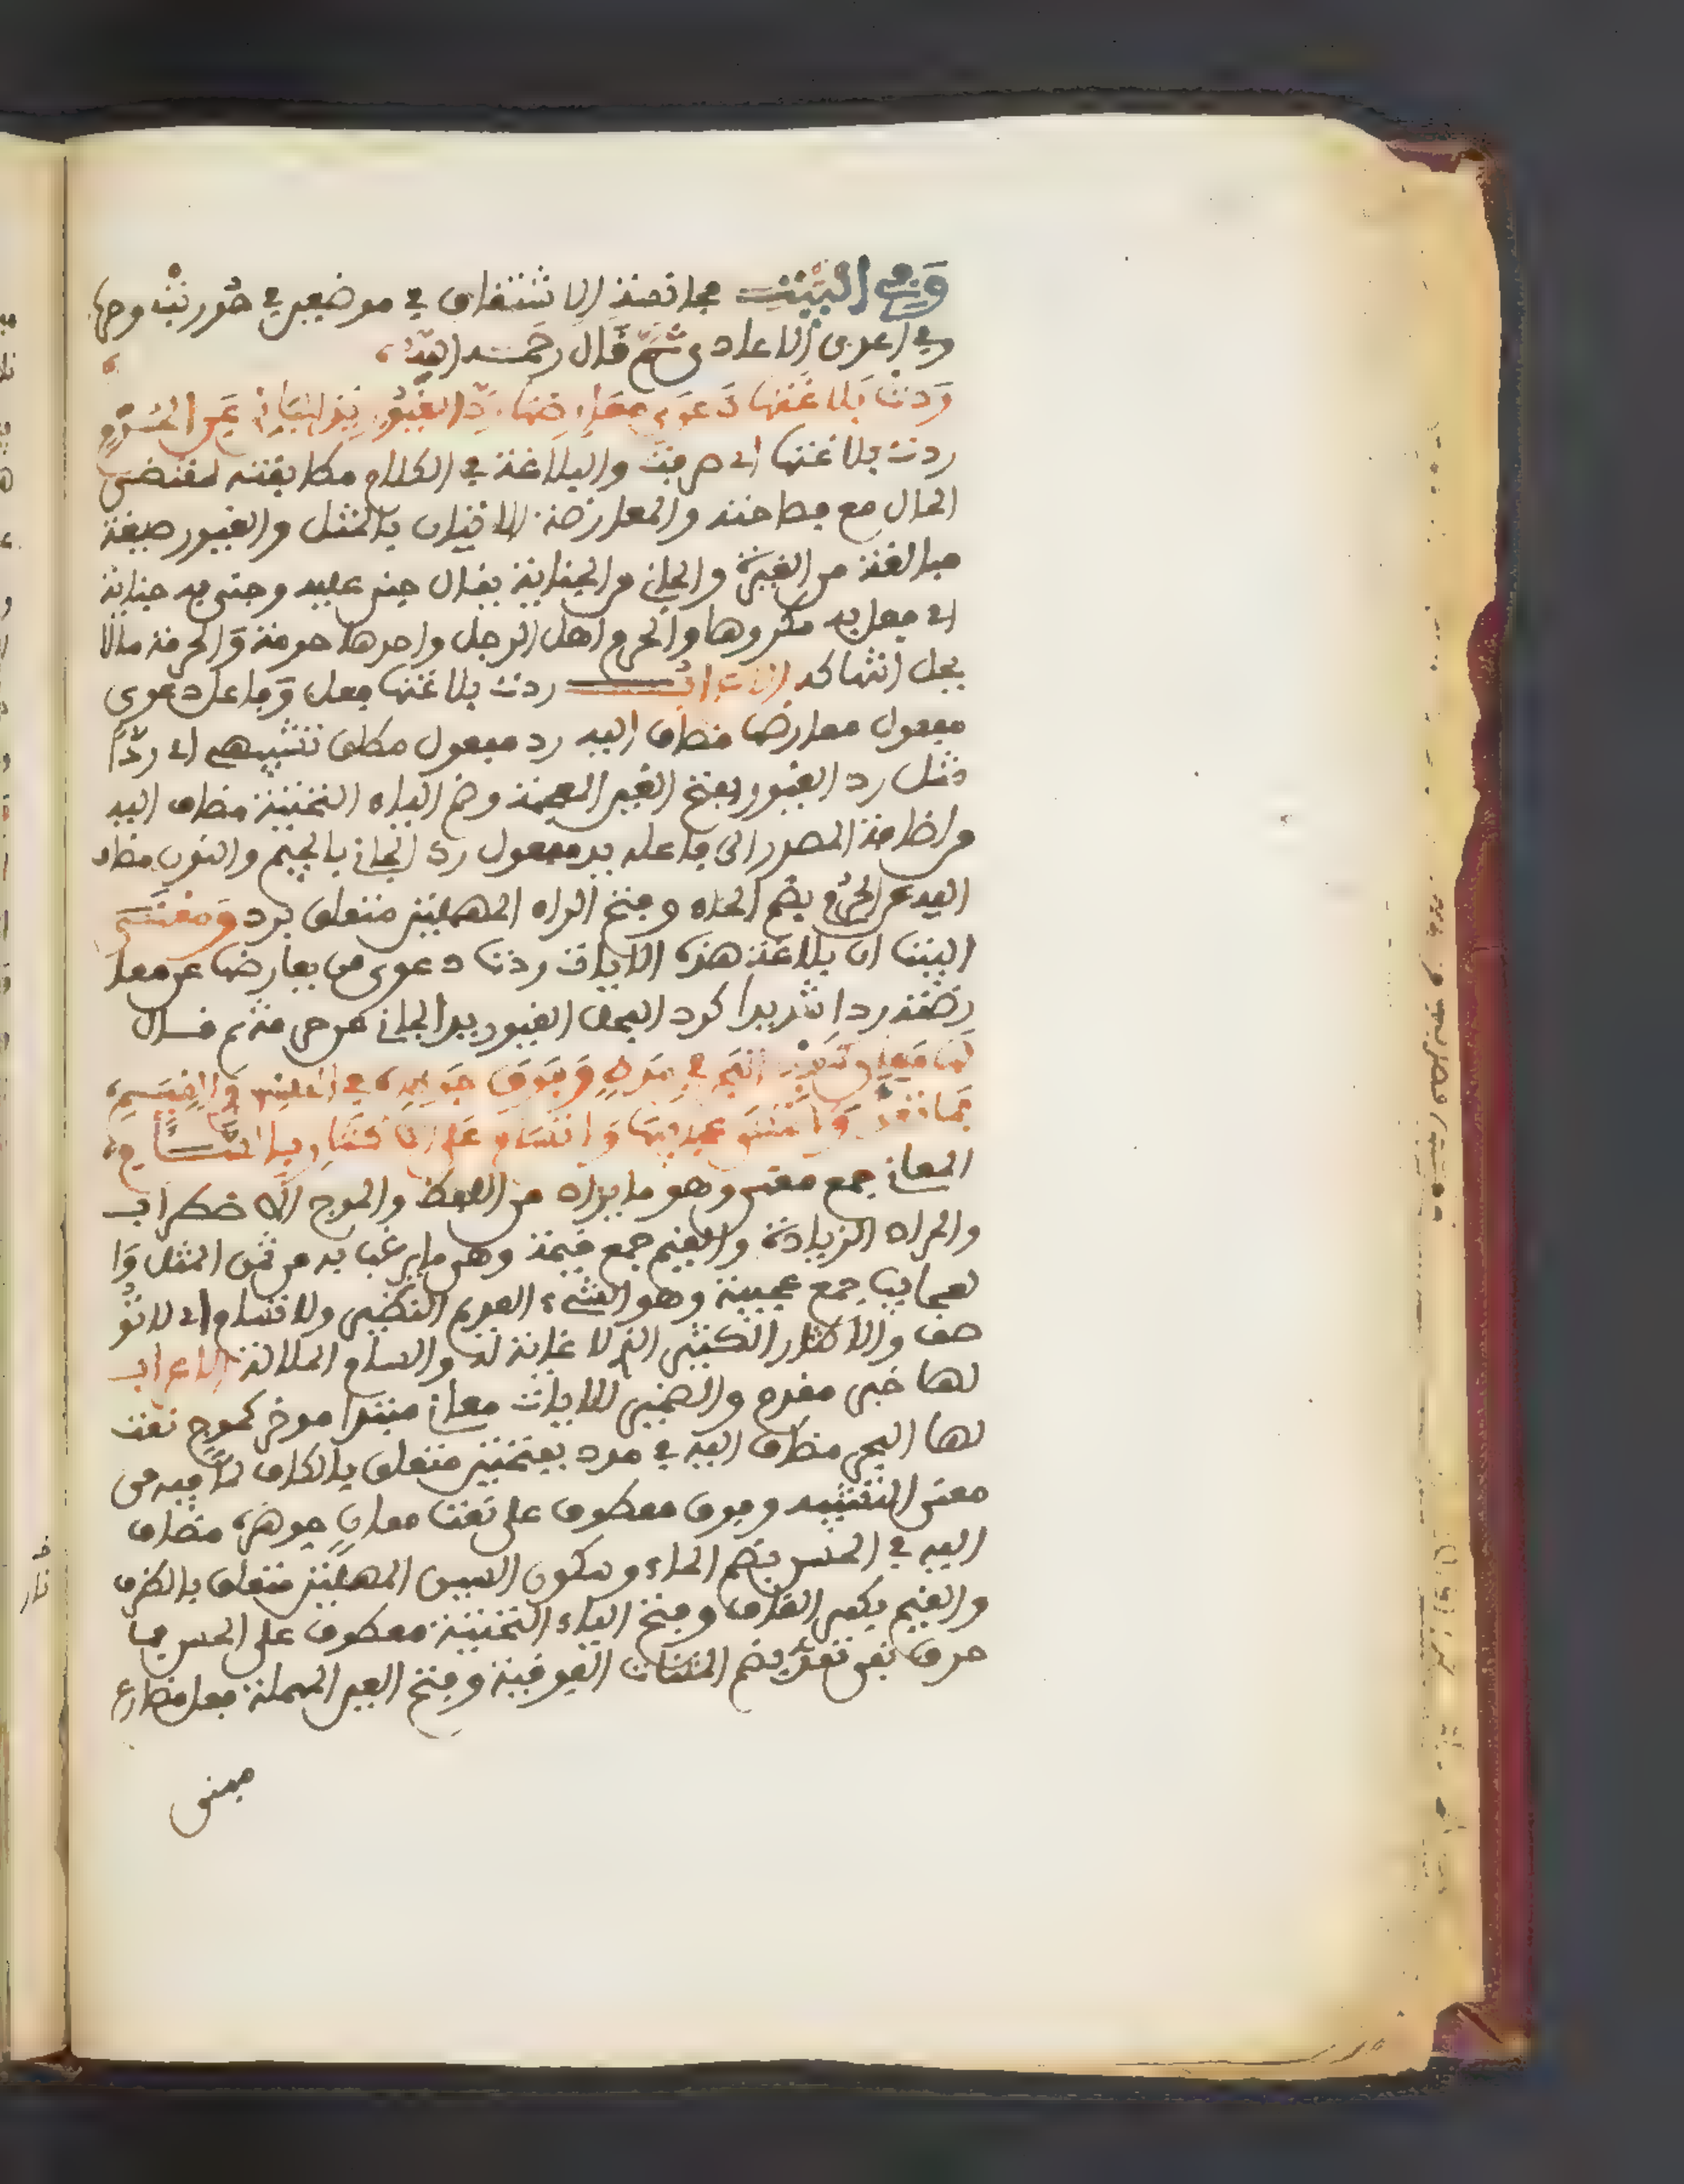 وفي البيت مجانسة الاشتقاق في موضعين في حوربت وحرب
وفي اعدى الاعادي ثم قال رحمه الله
ردت بلاغتها دعوى معارضها رد الغيور يد الجاني عن الحرم
ردت بلاغتها اي صرفت والبلاغة في الكلام مطابقته لمقتضى
الحال مع فصاحته والمعارضة الاتيان بالمثل والغيور صيغة
مبالغة من الغيرة والجاني من الجناية يقال جنى عليه وجنى به جناية
اي فعل به مكروها والحرم اهل الرجل واحدها حرمة والحرمة ما لا
يحل انتهاكه الاعراب ردت بلاغتها فعل وفاعل دعوى
مفعول معارضها مضاف اليه رد مفعول مطلق تشبيهي اي ردا
مثل رد الغيور بفتح الغين المعجمة وضم الياء التحتية مضاف اليه
من اضافة المصدر الى فاعله يد مفعول رد الجاني بالجيم والنون مضاف
اليه عن الحرم بضم الحاء وفتح الراء المهملتين متعلق برد ومعنى
البيت ان بلاغة هذه الايات ردت دعوى من يعارضها عن معا
رضته ردا شديدا كرد الفحل الغيور يد الجاني عن حرمته ثم قال
لها معان كموج البحر في مدد وفوق جوهره في الحسن والقيم
فما تعد ولا تحصى عجائبها ولا تسام على الاكثار بالسام
المعاني جمع معنى وهو ما يراد من اللفظ والموج الاضطراب
والمراد الزيادة والقيم جمع قيمة وهي ما يرغب به من ثمن المثل وا
لعجايب جمع عجيبة وهو الشيء العديم النظير ولا تسام اي لا تو
صف والاكثار الكثير الذي لا غاية له والسام الملالة الاعراب
لها خبر مقدم والضمير للايات معان مبتدا موخر كموج نعت
لها البحر مضاف اليه في مدد بفتحتين متعلق بالكاف لما فيه من
معنى التشبيه وفوق معطوف على نعت معان جوهره مضاف
اليه في الحسن بضم الحاء وسكون السين المهملتين متعلق بالظرف
والقيم بكسر القاف وفتح الياء التحتية معطوف على الحسن فما
حرف نفي تعد بضم المثناة الفوقية وفتح العين المهملة فعل مضارع
مبني